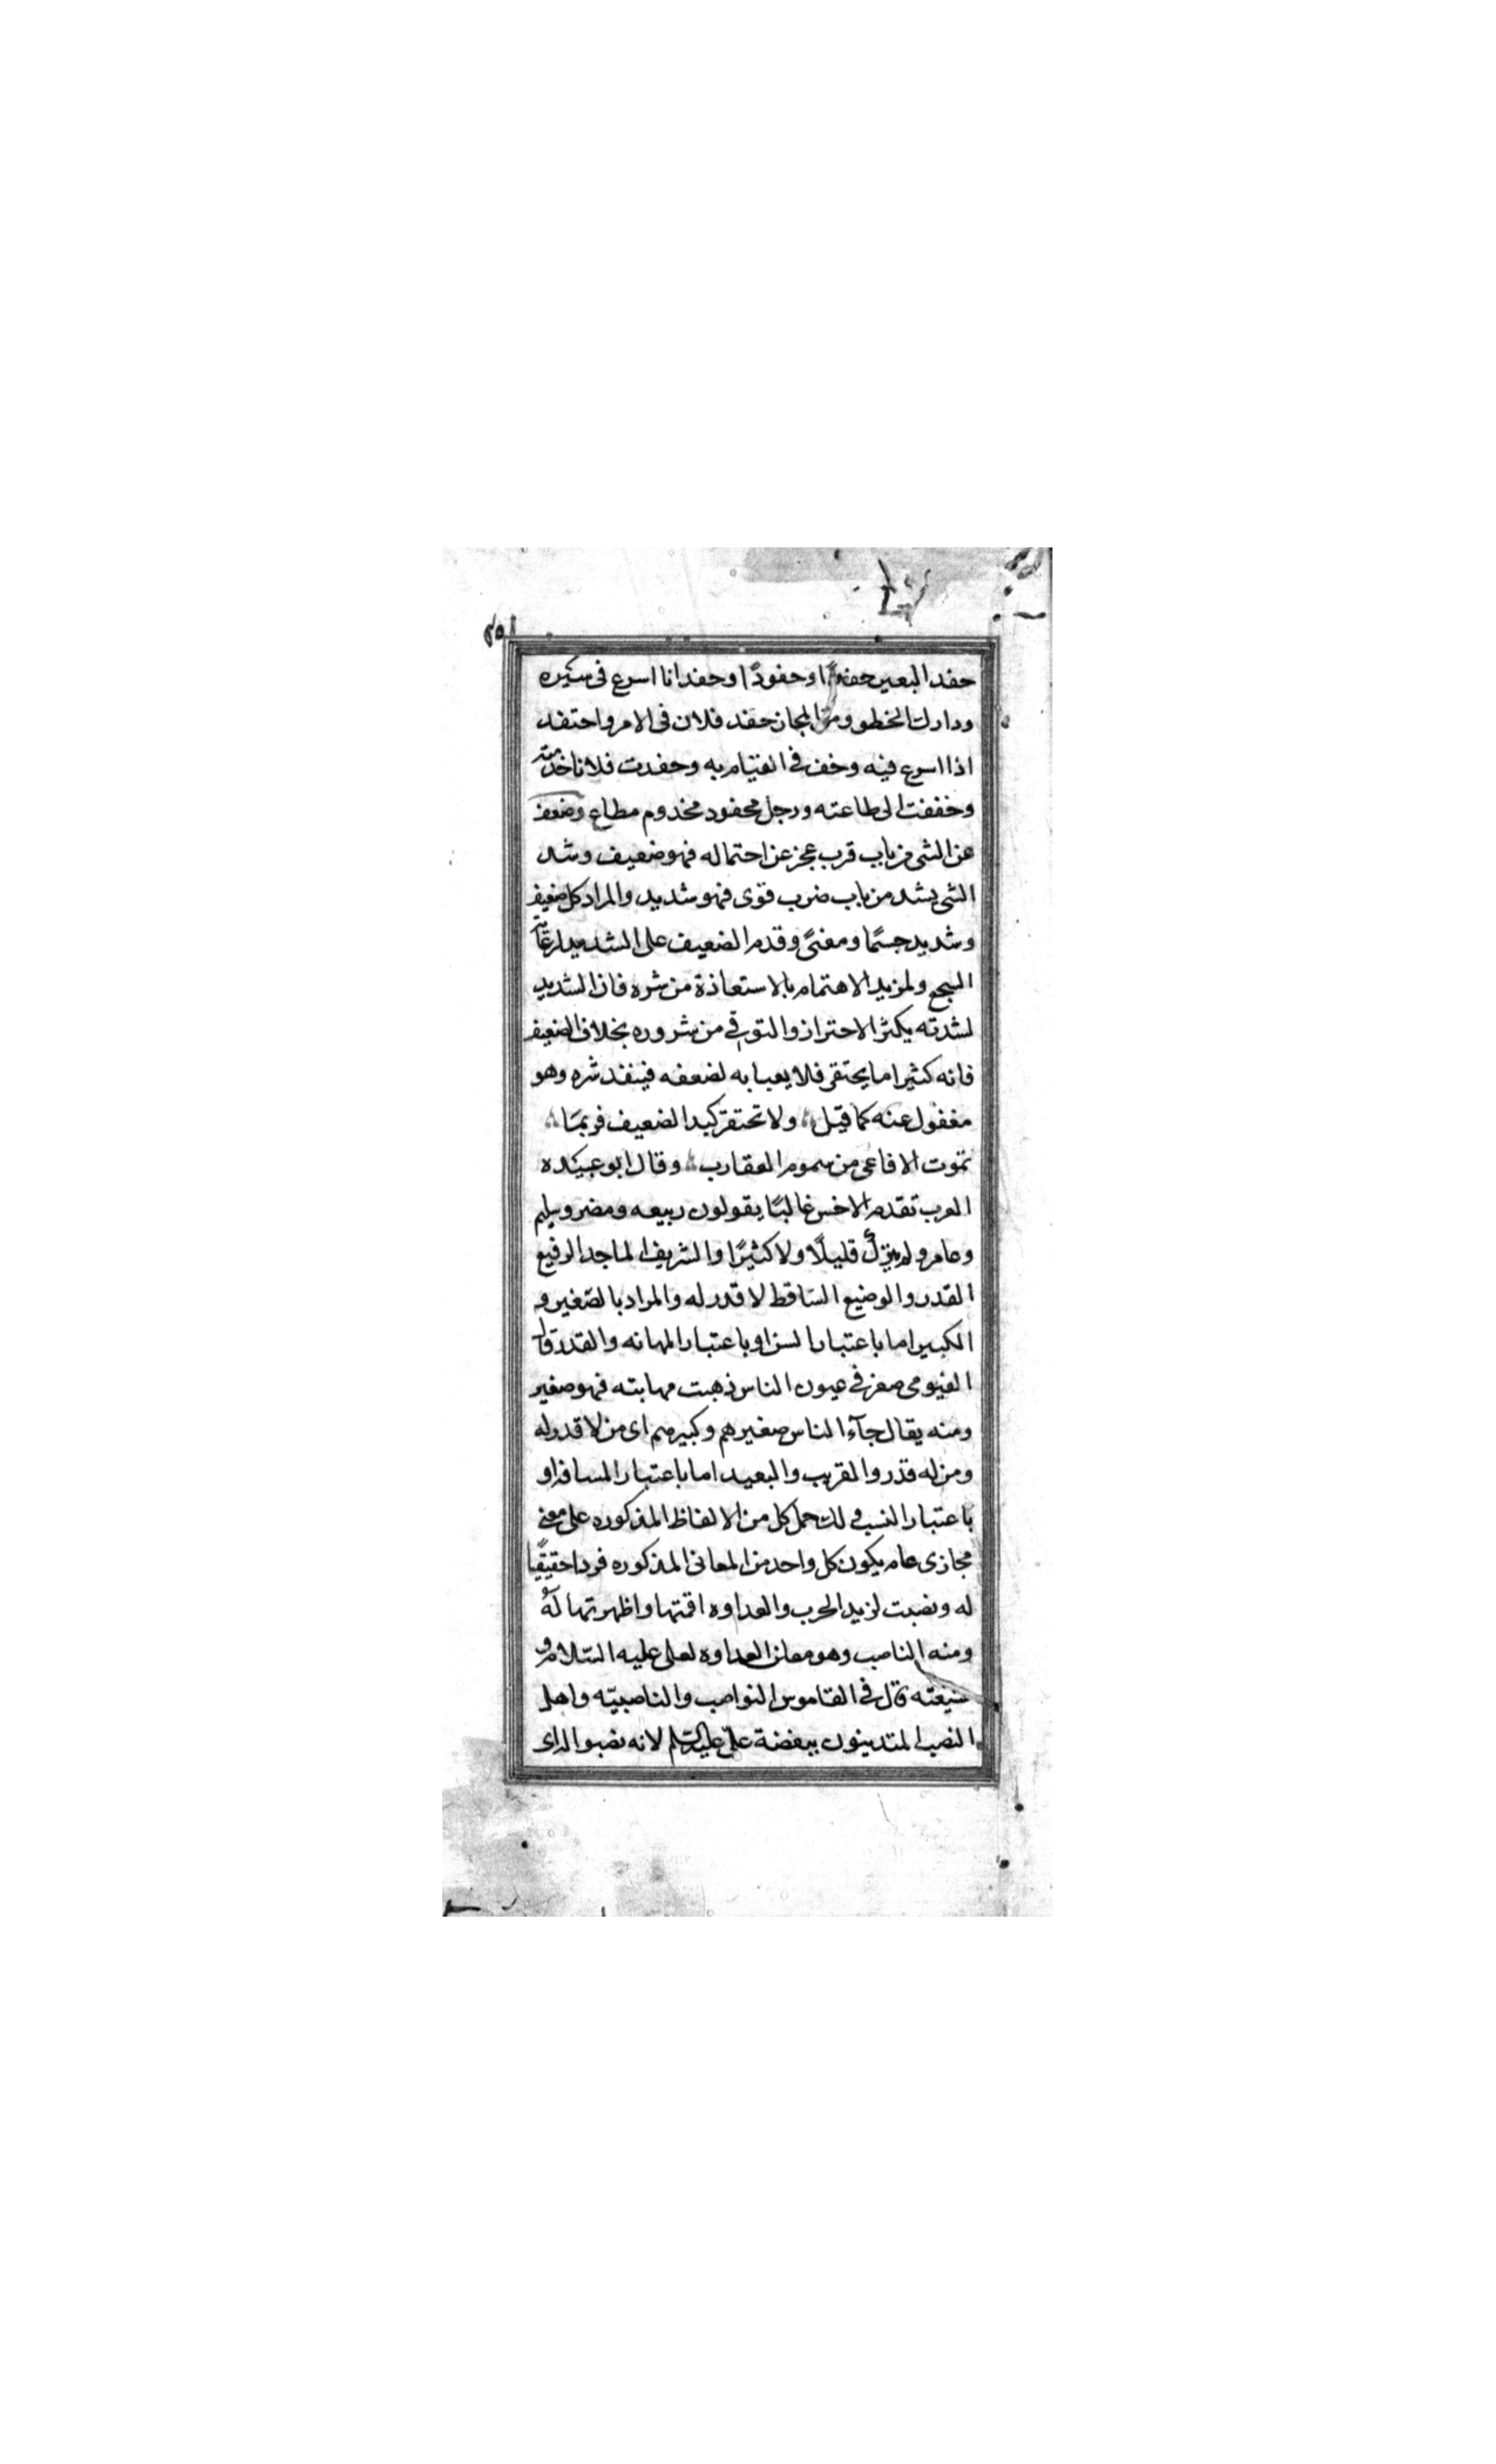 حفد البعير حفدًا وحفودًا وحفدانا اسرع فى سيره
ودارك الخطو ومن المجاز حفد فلان فى الامر واحتفد
اذا اسرع فيه وخف فى القيام به وحفدت فلانا خدمته
وخففت الى طاعته ورجل محفود مخدوم مطاع وضعف
عن الشى من باب قرب عجز عن احتماله فهو ضعيف وشد
الشى يشد من باب ضرب قوى فهو شديد والمراد كل ضعيف
وشديد جسمًا ومعنىً وقدم الضعيف على الشديد لرعاية
السجع ولمزيد الاهتمام بالاستعاذة من شره فان الشديد
لشدته يكثر الاحتراز والتوقى من شروره بخلاف الضعيف
فانه كثيرا ما يحتقر فلا يعبا به لضعفه فينفذ شره وهو
مغفول عنه كما قيل ولا تحتقر كيد الضعيف فربمَا
تموت الافاعى من سموم العقارب وقال ابو عبيَده
العرب تقدم الاخس غالبًا يقولون ربيعه ومضر وسليم
وعامر ولم يترك قليلًا ولا كثيرًا والشريف الماجد الرفيع
القدر والوضيع السَاقط لا قدر له والمراد بالصَغير و
الكبير اما باعتبار السن او باعتبار المهانه والقدر قال
الفيومى صغر فى عيون الناس ذهبت مهابته فهو صغير
ومنه يقال جآء الناس صغيرهم وكبيرهم اى من لا قدر له
ومن له قدر والقريب والبعيد اما باعتبار المسافه او
باعتبار النسب ولك حمل كل من الالفاظ المذكوره على معنى
مجازى عام يكون كل واحد من المعانى المذكوره فردا حقيقيًا
له ونصبت لزيد الحرب والعداوه اقمتها واظهرتها له
ومنه الناصب وهو معلن العداوه لعلى عليه السَلام و
شيعته قال فى القاموس النواصب والناصبيّه واهل
النصب المتدينون ببغضة علىّ عليه السّلم لانه نصبوا له اى